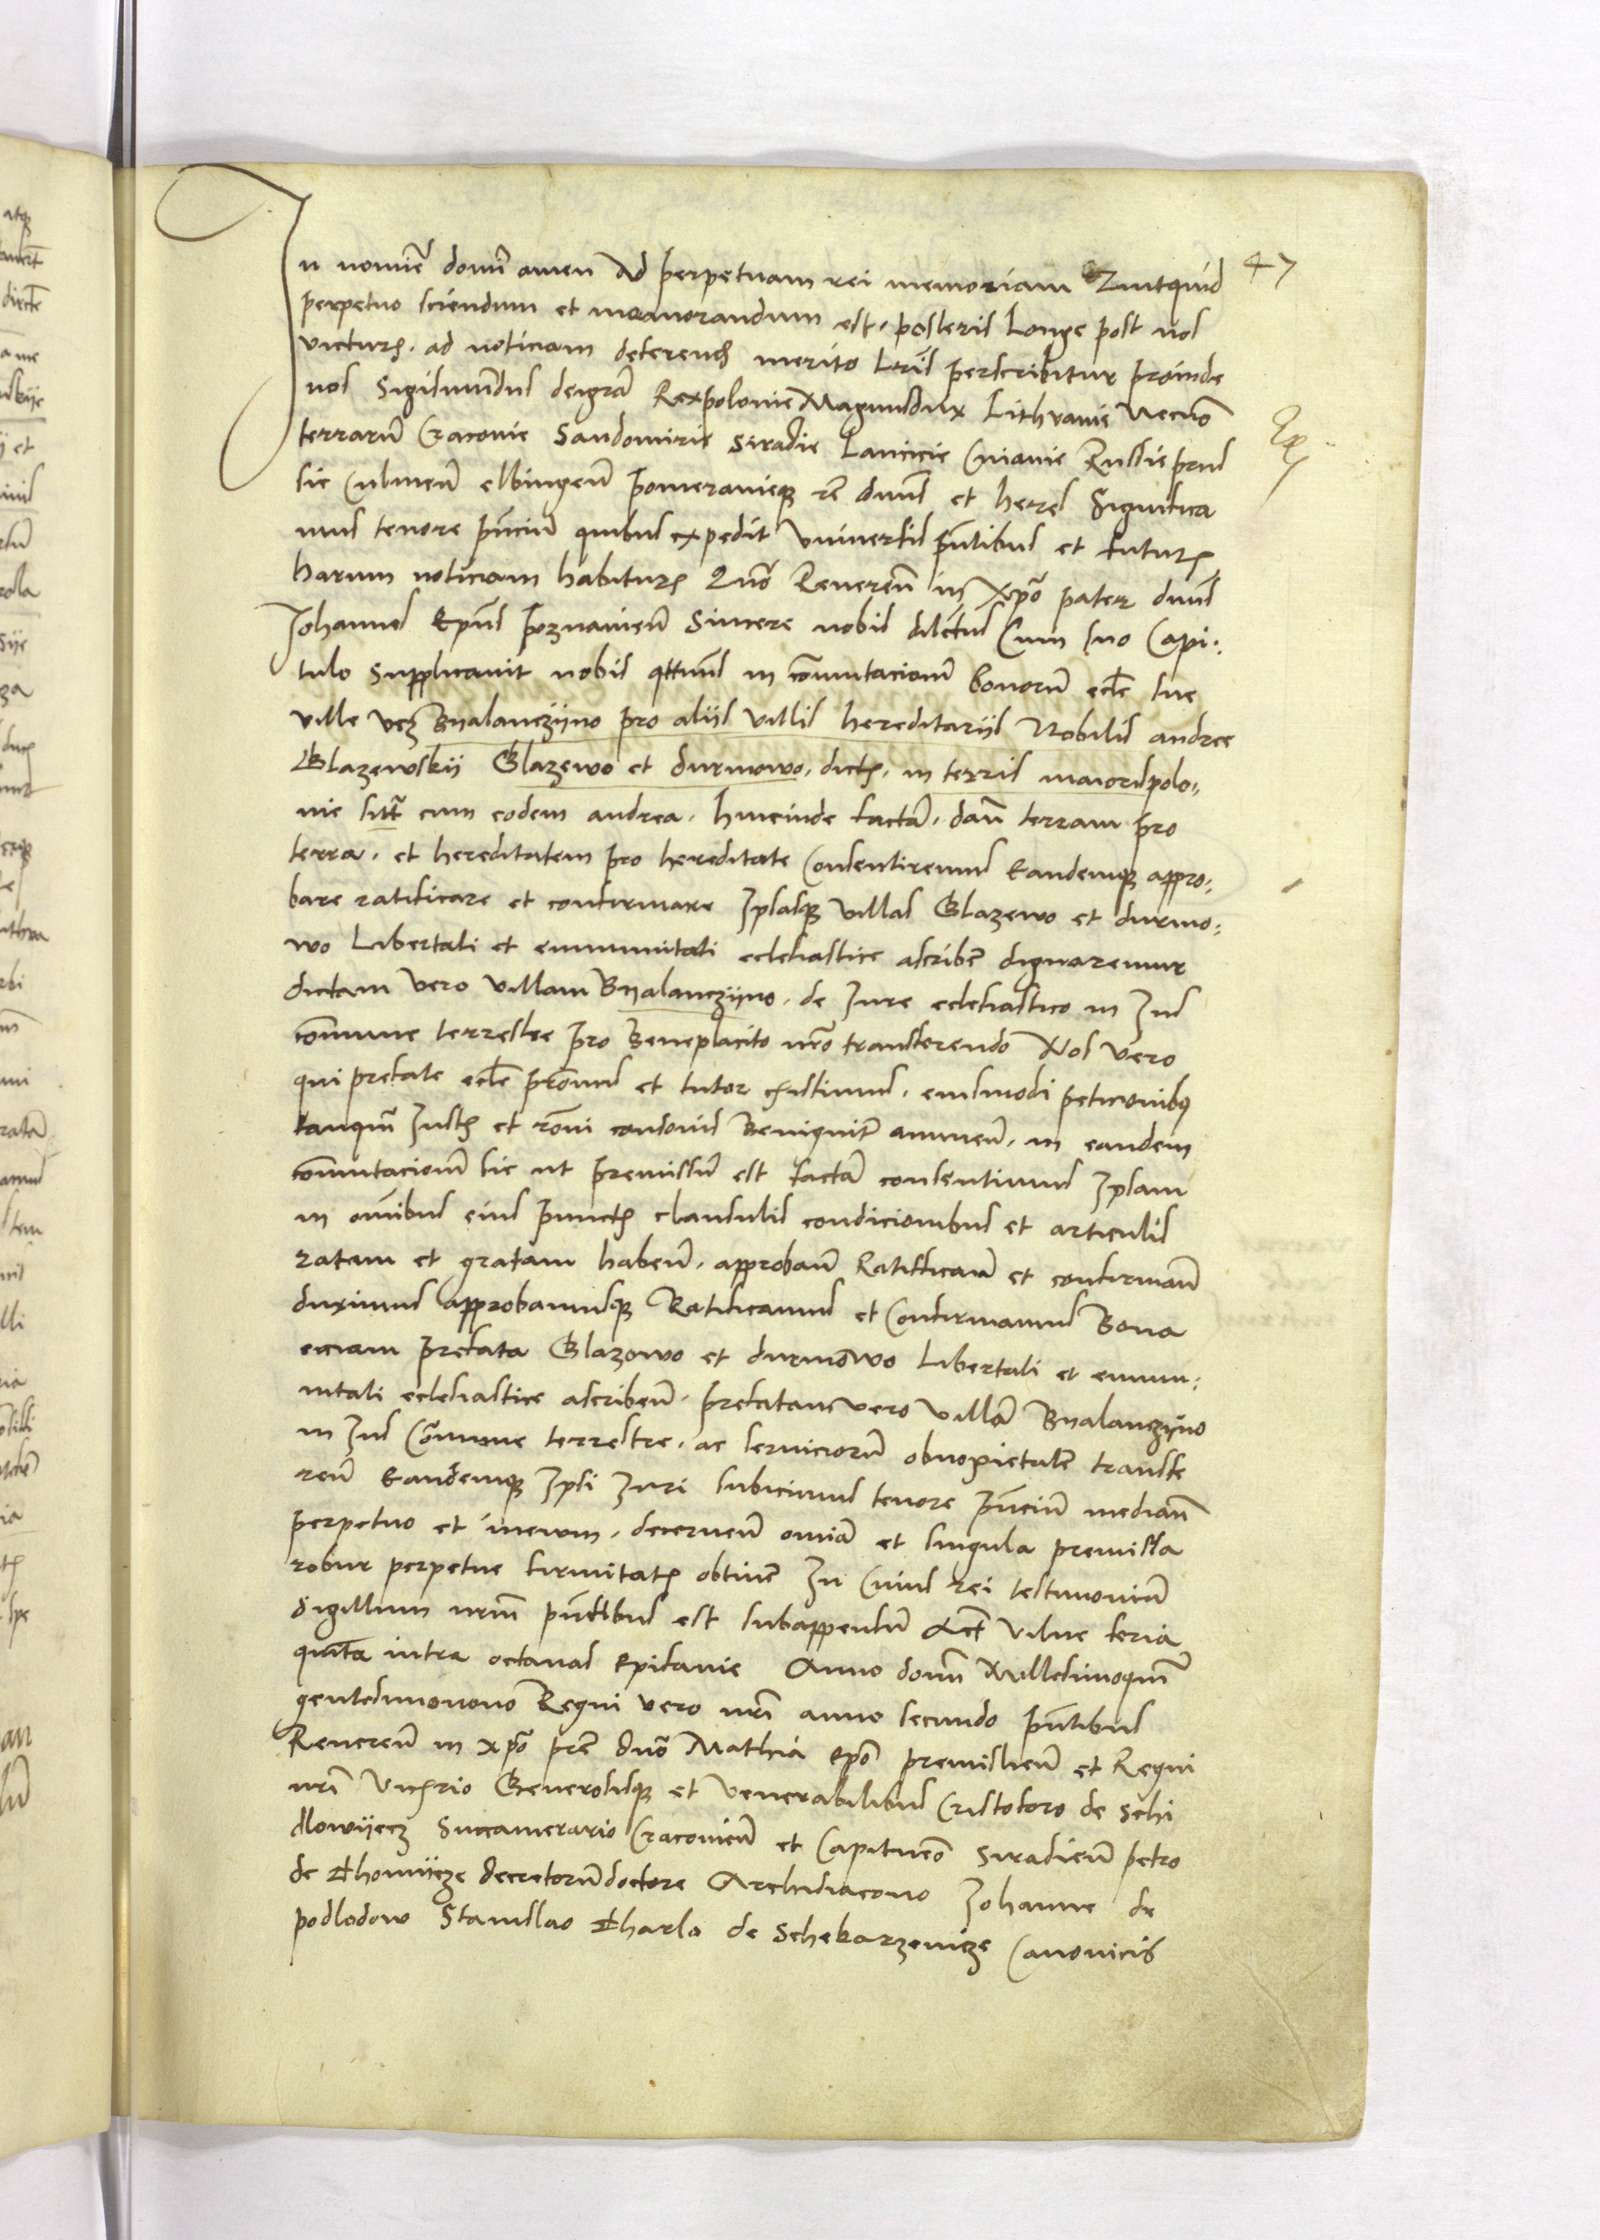 47
In nomine domini amen Ad perpetuam rei memoriam Quitquid
perpetuo sciendum et memorandum est, posteris Longe post nos
victuris, ad noticiam deferend merito Lris perscribitur proinde
nos Sigismundus dei gra Rex polonie Magnusdux Lithvanie Necno
terrarum Cracovie Sandomirie Siradie Lancicie Cuiavie Russie prus
sie Culmen elbingen pomeranieque rc dnns et heres Significa
mus tenore pncium quibus expedit vniversis pntibus et futuris
harum noticiam habituris Quo Reveren in xpo pater dnns
Johannes Epus poznanien Sincere nobis dilectus Cum suo Capi-
tulo supplicavit nobis qttnus in comutacionem bonorum eccle sue
ville vcz Byalanczyno pro alijs villis hereditarijs Nobilis andree
Glazewskij Glazewo et durnowo, dictis, in terris maiorispolo-
nie sitis cum eodem andrea, hincinde factam, dan terram pro
terra, et hereditatem pro hereditate Consentiremus Eandemque appro-
bare ratificare et confirmare Ipsasque villas Glazewo et durno-
wo Libertati et emmunitati ecclesiastice ascribere dignaremur
dictam vero villam Byalanczyno, de Jure ecclesiastico in Jus
commune terrestre pro beneplacito nro transferendo Nos vero
qui prefate eccle pronus et tutor existimus, eiusmodi peticionibus
tanquam Justis et roni consonis Benignit annuen, in eandem
comutacionem sic ut premissum est factam consentimus Ipsam
in omnibus eius punctis clausulis condicionibus et articulis
ratam et gratam haben, approban Ratifican et confirman
duximus approbamusque Ratificamus et Confirmamus Bona
eciam prefata Glazowo et durnowo Libertati et emmu-
nitati ecclesiastice ascriben, prefatam vero villam Byalanczyno
in Jus Commune terrestre, ac serviciorum obnoxietatem transfe
ren Eandemque Ipsi Juri subicimus tenore pncium median
perpetuo et inewm, decernen omia et singula premissa
robur perpetue firmitatis obtinere In Cuius rei testimonium
Sigillum nrm pntibus est subappensum Act vilne feria
quinta infra octavas Epifanie Anno domini Millesimoquin
gentesimonono Regni vero nri anno secundo pntibus
Reveren in xpo pre dno Mathia epo premislien et Regni
nri vicecancellario Generosisque et venerabilibus Cristoforo de Schi
dlowijecz Succamerario Cracovien et Capitaneo Siradien petro
de thomijcze decretorum doctore Archidiacono Johanne de
podlodow Stanislao Charlo de Schekarzewicze Canonicis